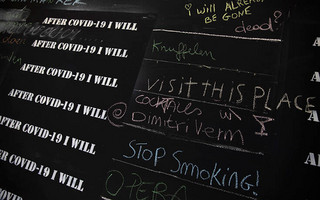 i will ALREADY
BE GONE
dead!
AFTER COVID-19 I WILL
AFTER COVID-19 I WILL Knuffelen
AFTER COVID-19 I WILL
AFTER COVID-19 I WILL VISIT THIS PLACE
AFTER COVID-19 I WILL COCKTAILS W/
@ DimitriVerm
AFTER COVID-19 I WILL STOP SMOKING!
AFTER COVID-19 I WILL OPERA